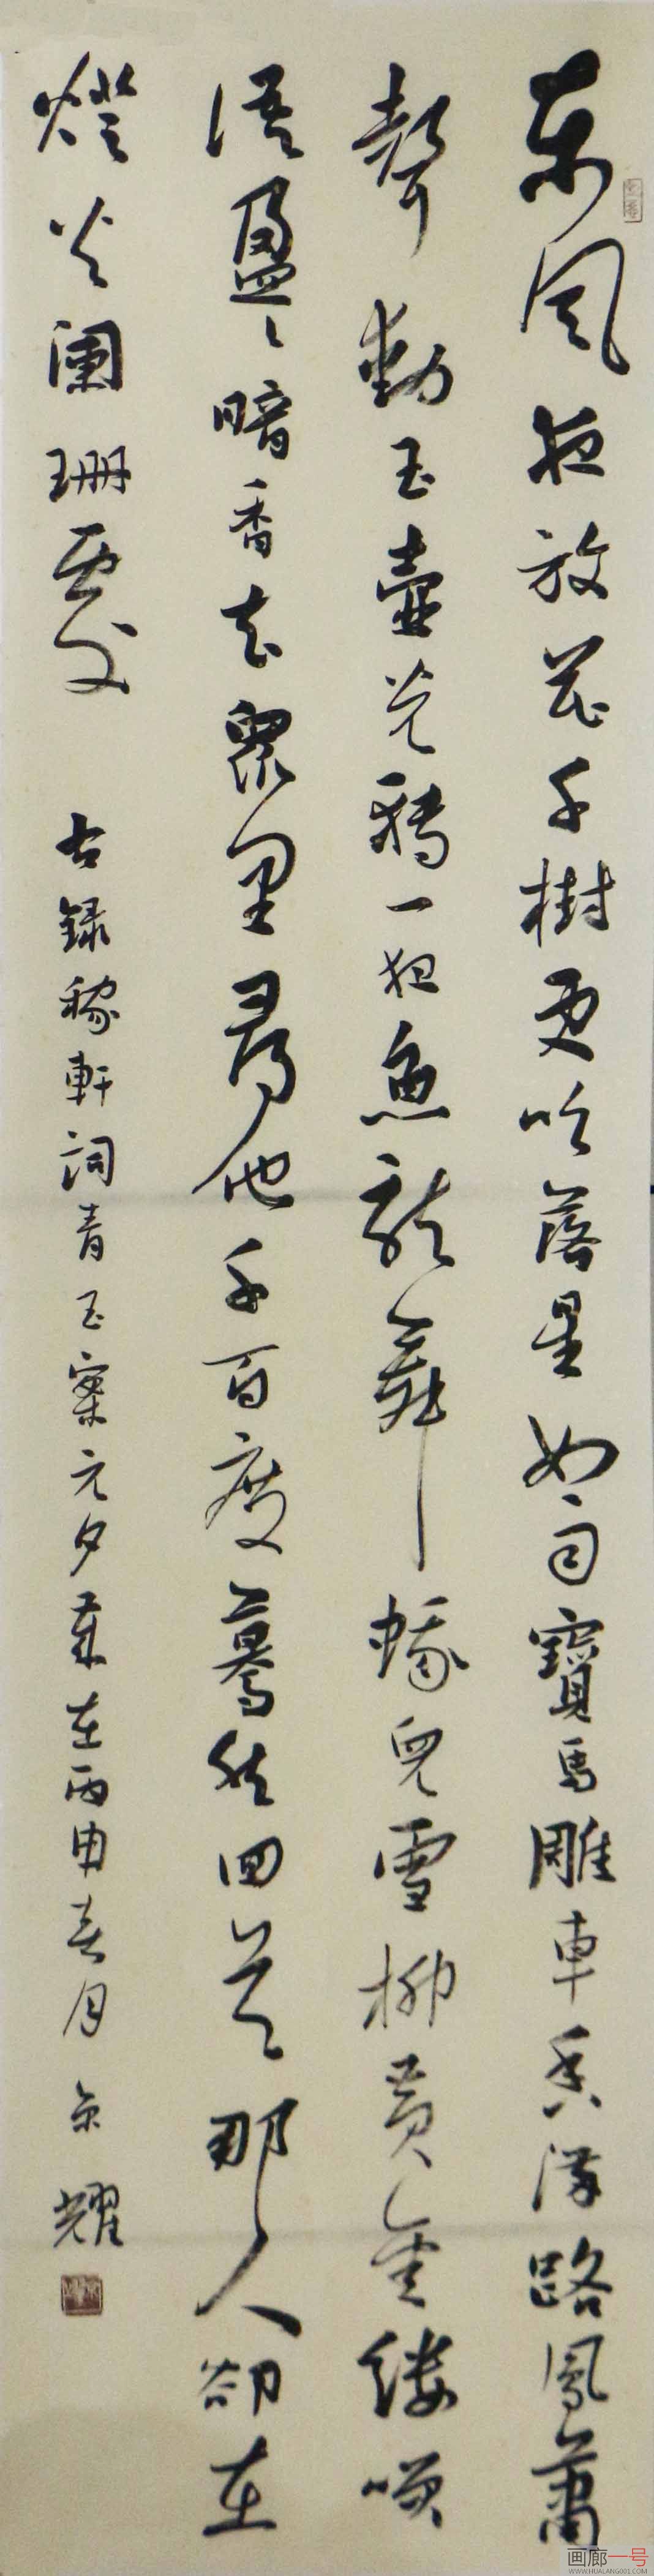 东风夜放花千樹更吹落星如雨寶馬雕車香满路鳳萧
聲動玉壺光轉一夜魚龍舞蛾兒雪柳黄金缕唤
语盈々暗香去眾里尋他千百度驀然回首那人卻在
燈火阑珊處
古録稼軒詞青玉案元夕歲在丙申春月
耀
画廊一号
WWW.HUALANG001.COM